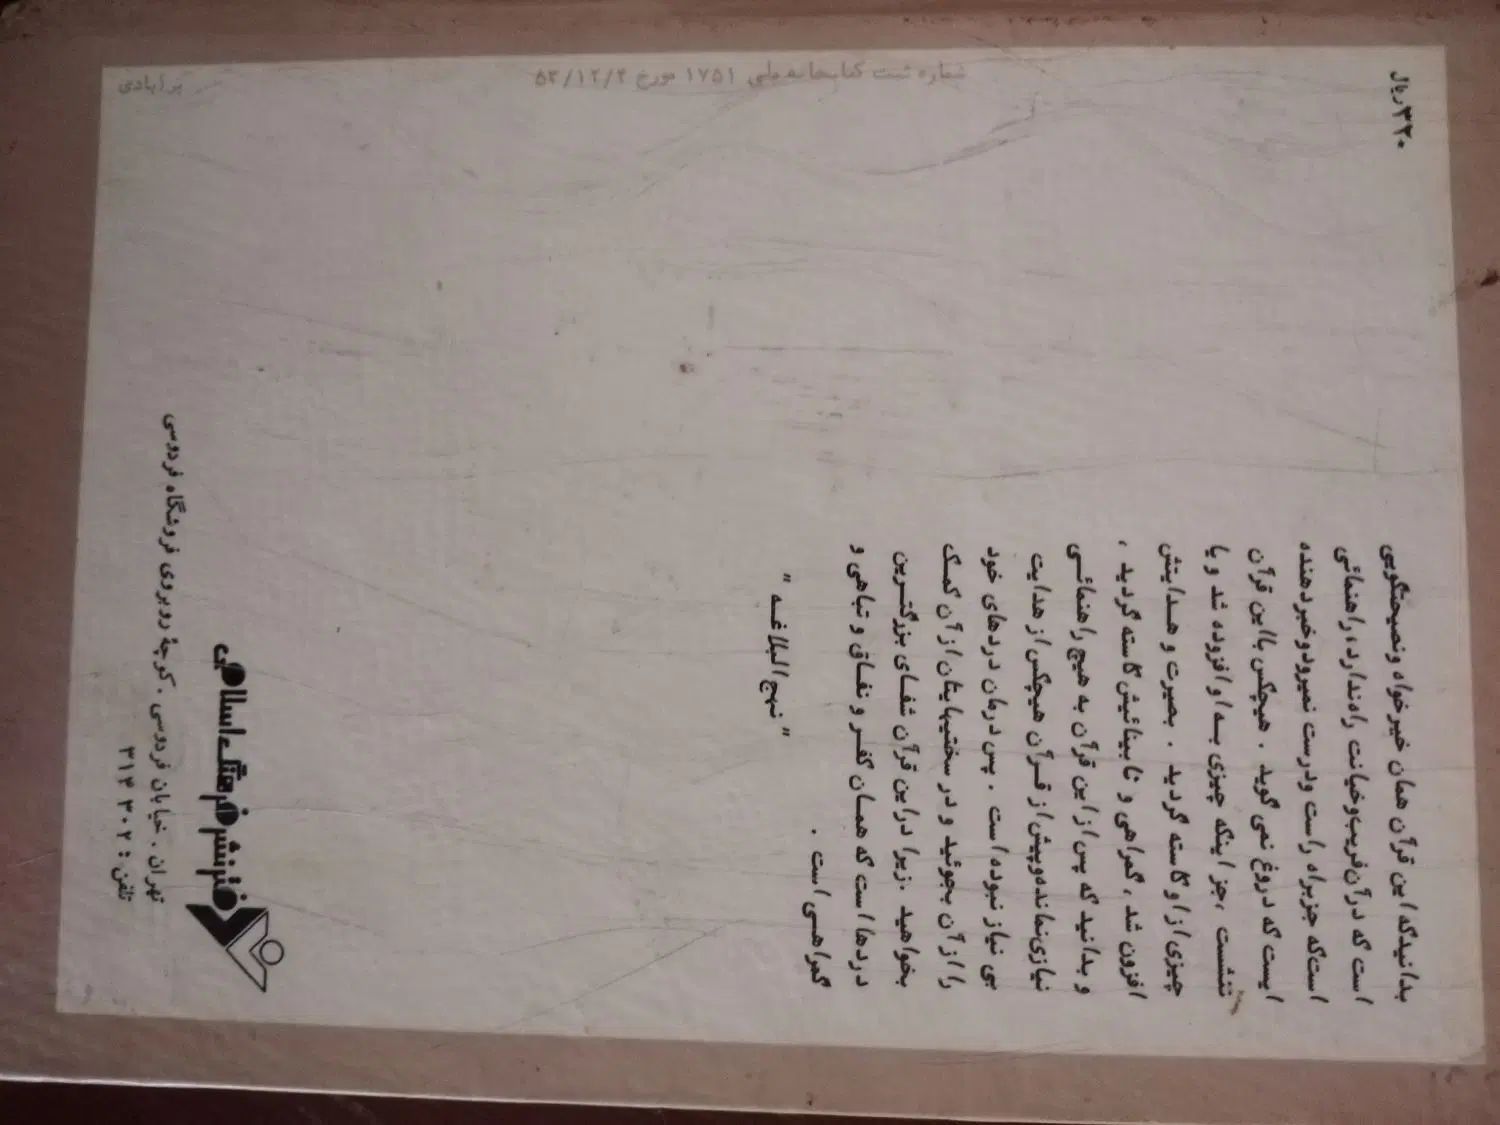 ۳۲۰ ریال
بدانیدکه این قرآن همان خیرخواه ونصیحتگویی
است که درآن‌فریب‌وخیانت راه‌ندارد، راهنمائی
است‌که جزبراه راست ودرست نمیرودوخبردهنده
ایست که دروغ نمی گوید . هیچکس بااین قرآن
ننشست ،جز اینکه چیزی بـه او افزوده شد و یا
چیزی از او کاسته گردید . بصیرت و هـدایتش
افزون شد ، گمراهی و نابینائیش کاسته گردید ،
و بدانید که پس از این قرآن به هیچ راهنمائـی
نیازی‌نمانده‌وپیش‌از قـرآن هیچکس از هدایت
بی نیاز نبوده است . پس درمان دردهای خود
را از آن بجوئید و در سختیهایتان از آن کمـک
بخواهید .زیرا دراین قرآن شفـای بزرگتـرین
دردهااست که همـان کفـر و نفـاق و تباهی و
گمراهـی است .
" نهج البلاغـه "
شماره ثبت کتابخانه‌ملی ۱۷۵۱ مورخ ۵۳/۱۲/۴
دفترنشرفرهنگ‌اسلامی
تهران . خیابان فردوسی . کوچهٔ روبروی فروشگاه فردوسی
تلفن : ۳۰۲ ۳۱۴